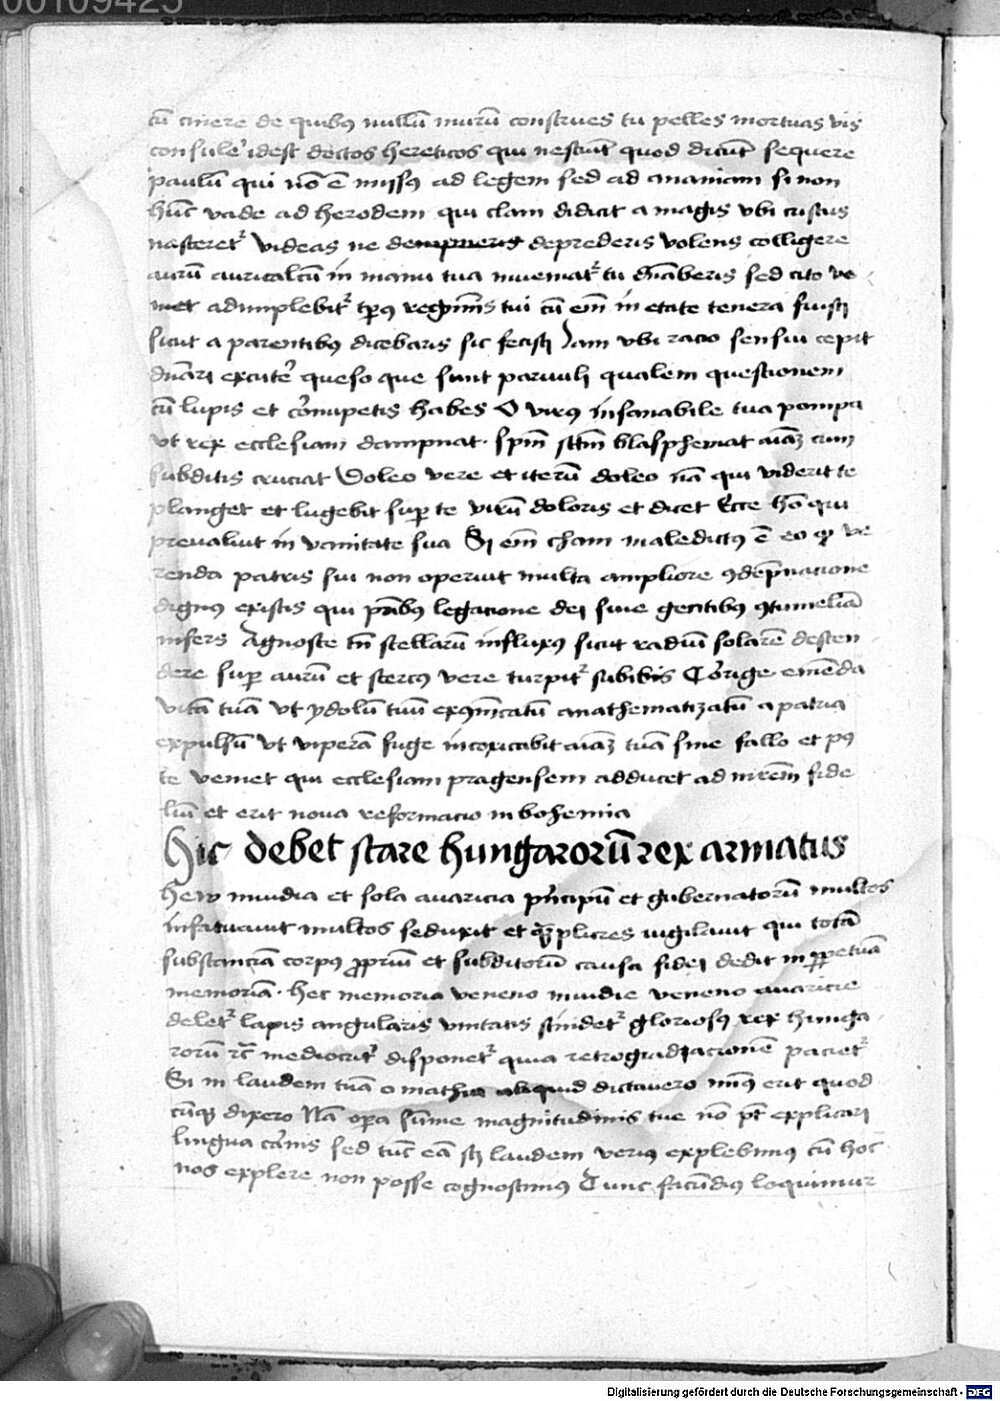 00109425
cū cinere de quibꝯ nullū murū construes tu pelles mortuas vis
consule' idest doctos hereticos qui nesciūt quod dicūt sequere
paulū qui nō ē missꝯ ad legem sed ad ananiam si non
hūc vade ad herodem qui clam didicit a magis vbi cristus
nascereť videas ne deprederis volens colligere
aurū auricalcū in manu tua inueniať tu dn̄aberis sed cito ve
niet adimplebiť tp̄ꝯ regīnis tui cū em̄ in etate tenera fuisti
sicut a parentibꝯ dicebaris sic fecisti Iam vbi racio sensui cepit
dn̄ari excute' queso que sunt paruuli qualem questionem
cū lupis et cornupetis habes O virꝯ insanabile tua pompa
vt rex ecclesiam dampnat. sp̄m sc̄m blasphemat aīaꝫ cum
subditis cruciat Doleo vere et iterū doleo nā qui viderit te
planget et lugebit sup te virū doloris et dicet Ecce hō qui
preualuit in vanitate sua Si em̄ cham maledictꝯ ē eo ꝙ ve
renda patris sui non operuit multa ampliore ꝯdēpnacione
dignꝯ existis qui p̄ribꝯ legacione dei siue gentibꝯ ꝯtumeliā
infers Agnosce tn̄ stellarū influxꝯ sicut radiū solarē descen
dere sup aurū et stercꝯ vere turpiť subibis Corrige emēda
vitā tuā vt ydolū tuū exꝯīcatū anathematizatū a patria
expulsū vt viperā fuge intoxicabit aīaꝫ tuā sine fallo et pꝯ
te veniet qui ecclesiam pragensem adducet ad mr̄em fide
liū et erit noua reformacio in bohemia
Hic debet stare hungarorū rex armatus
Hew inuidia et sola auaricia pn̄cipū et gubernatorū multos
infatuauit multos seduxit et qꝫplures iugilauit qui totā
substanciā corpꝯ ꝓpriū et subditorū causa fidei dedit in ꝑpetuā
memoriā. hec memoria veneno inuidie veneno auaricie
deleť lapis angularis vnitatis scindeť gloriosꝯ rex hunga
rorū rc̄ mediocriť disponeť quia retrogradacionē pacieť
Si in laudem tuā o mathia aliquid dictauero minꝯ erit quod
cūqꝫ dixero Nā opa sūme magnitudinis tue nō pt̄ explicari
lingua carnis sed tūc eā sꝫ laudem veriꝯ explebimꝯ cū hoc
nos explere non posse cognoscimꝯ Tunc facūdiꝯ loquimur
Digitalisierung gefördert durch die Deutsche Forschungsgemeinschaft - DFG